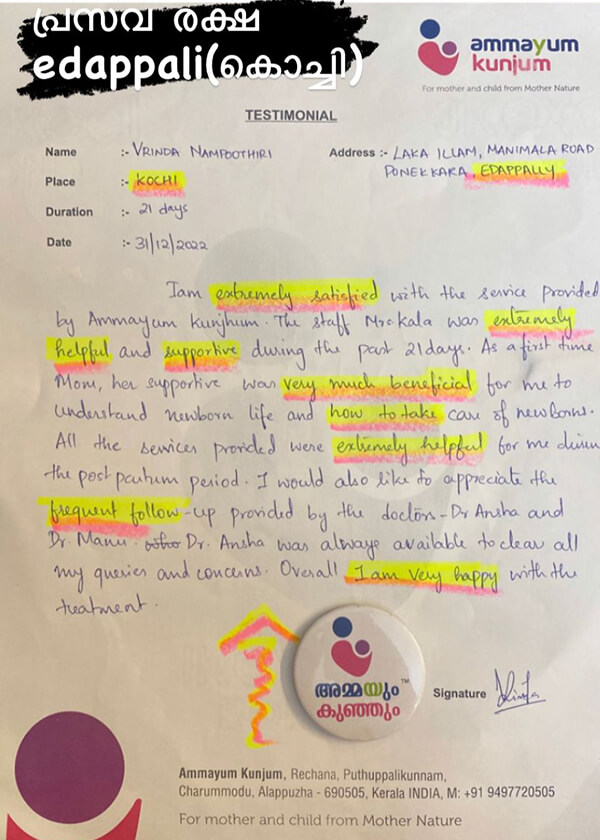 പ്രസവ രക്ഷ
edappali(കൊച്ചി)
ammayum
kunjum
For mother and child from Mother Nature
TESTIMONIAL
Name :- VRINDA NAMPOOTHIRI
Address :- LAKA ILLAM, MANIMALA ROAD
PONEKKARA, EDAPPALLY
Place :- KOCHI
Duration :- 21 days
Date :- 31/12/2022
Iam extremely satisfied with the service provided
by Ammayum Kunjhum. The staff Mrs kala was extremely
helpful and supportive during the past 21 days. As a first time
Mom, her supportive was very much beneficial for me to
understand newborn life and how to take care of newborns.
All the services provided were extremely helpful for me during
the post partum period. I would also like to appreciate the
frequent follow-up provided by the doctors - Dr Ansha and
Dr. Manu. Dr. Ansha was always available to clear all
my queries and concerns. Overall I am very happy with the
treatment.
അമ്മയും TM
കുഞ്ഞും
Signature
Ammayum Kunjum, Rechana, Puthuppalikunnam,
Charummodu, Alappuzha - 690505, Kerala INDIA, M: +91 9497720505
For mother and child from Mother Nature